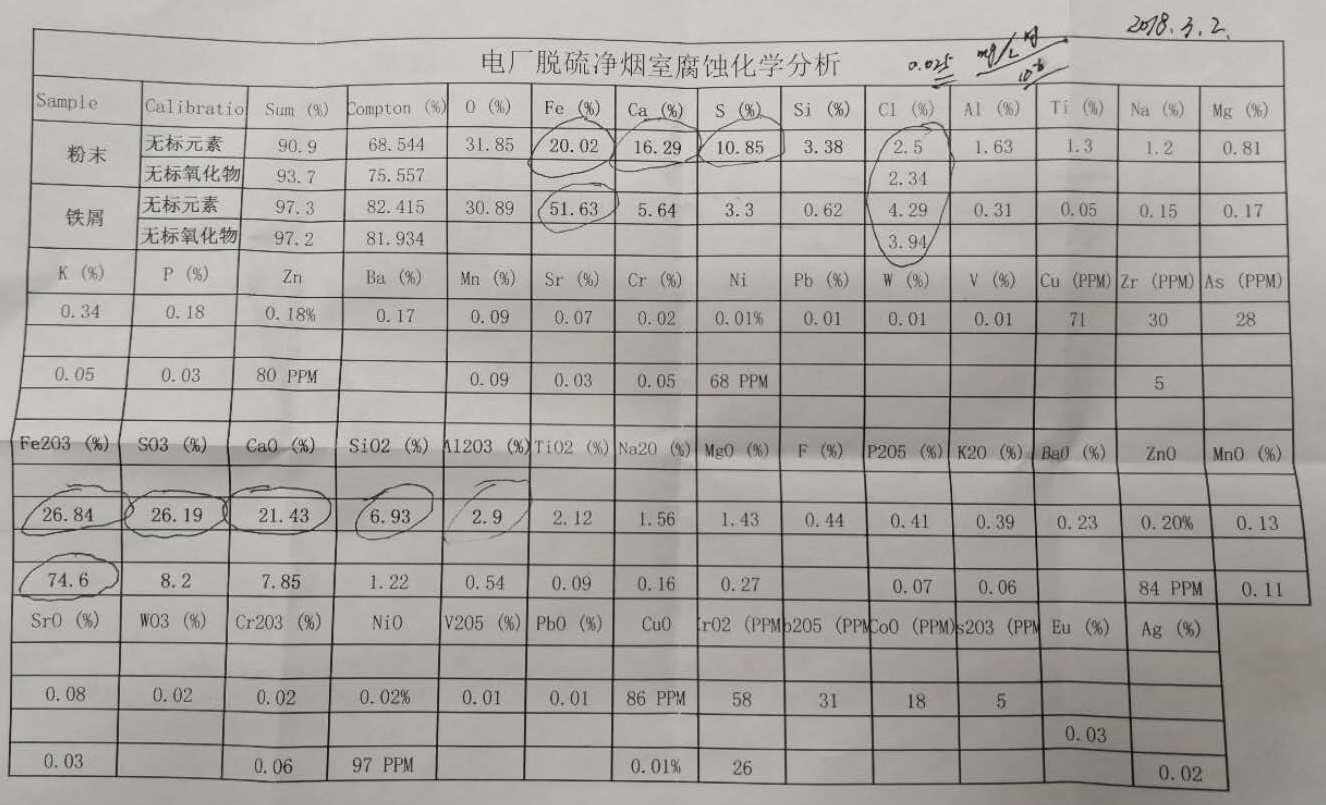 2018.3.2.
电厂脱硫净烟室腐蚀化学分析 0.025 mg/L 10⁻⁶
Sample Calibratio Sum (%) Compton (%) O (%) Fe (%) Ca (%) S (%) Si (%) Cl (%) Al (%) Ti (%) Na (%) Mg (%)
粉末 无标元素 90.9 68.544 31.85 20.02 16.29 10.85 3.38 2.5 1.63 1.3 1.2 0.81
无标氧化物 93.7 75.557 2.34
铁屑 无标元素 97.3 82.415 30.89 51.63 5.64 3.3 0.62 4.29 0.31 0.05 0.15 0.17
无标氧化物 97.2 81.934 3.94
K (%) P (%) Zn Ba (%) Mn (%) Sr (%) Cr (%) Ni Pb (%) W (%) V (%) Cu (PPM) Zr (PPM) As (PPM)
0.34 0.18 0.18% 0.17 0.09 0.07 0.02 0.01% 0.01 0.01 0.01 71 30 28
0.05 0.03 80 PPM 0.09 0.03 0.05 68 PPM 5
Fe2O3 (%) SO3 (%) CaO (%) SiO2 (%) Al2O3 (%) TiO2 (%) Na2O (%) MgO (%) F (%) P2O5 (%) K2O (%) BaO (%) ZnO MnO (%)
26.84 26.19 21.43 6.93 2.9 2.12 1.56 1.43 0.44 0.41 0.39 0.23 0.20% 0.13
74.6 8.2 7.85 1.22 0.54 0.09 0.16 0.27 0.07 0.06 84 PPM 0.11
SrO (%) WO3 (%) Cr2O3 (%) NiO V2O5 (%) PbO (%) CuO rO2 (PPM b2O5 (PPM CoO (PPM) s2O3 (PPM Eu (%) Ag (%)
0.08 0.02 0.02 0.02% 0.01 0.01 86 PPM 58 31 18 5
0.03
0.03 0.06 97 PPM 0.01% 26 0.02